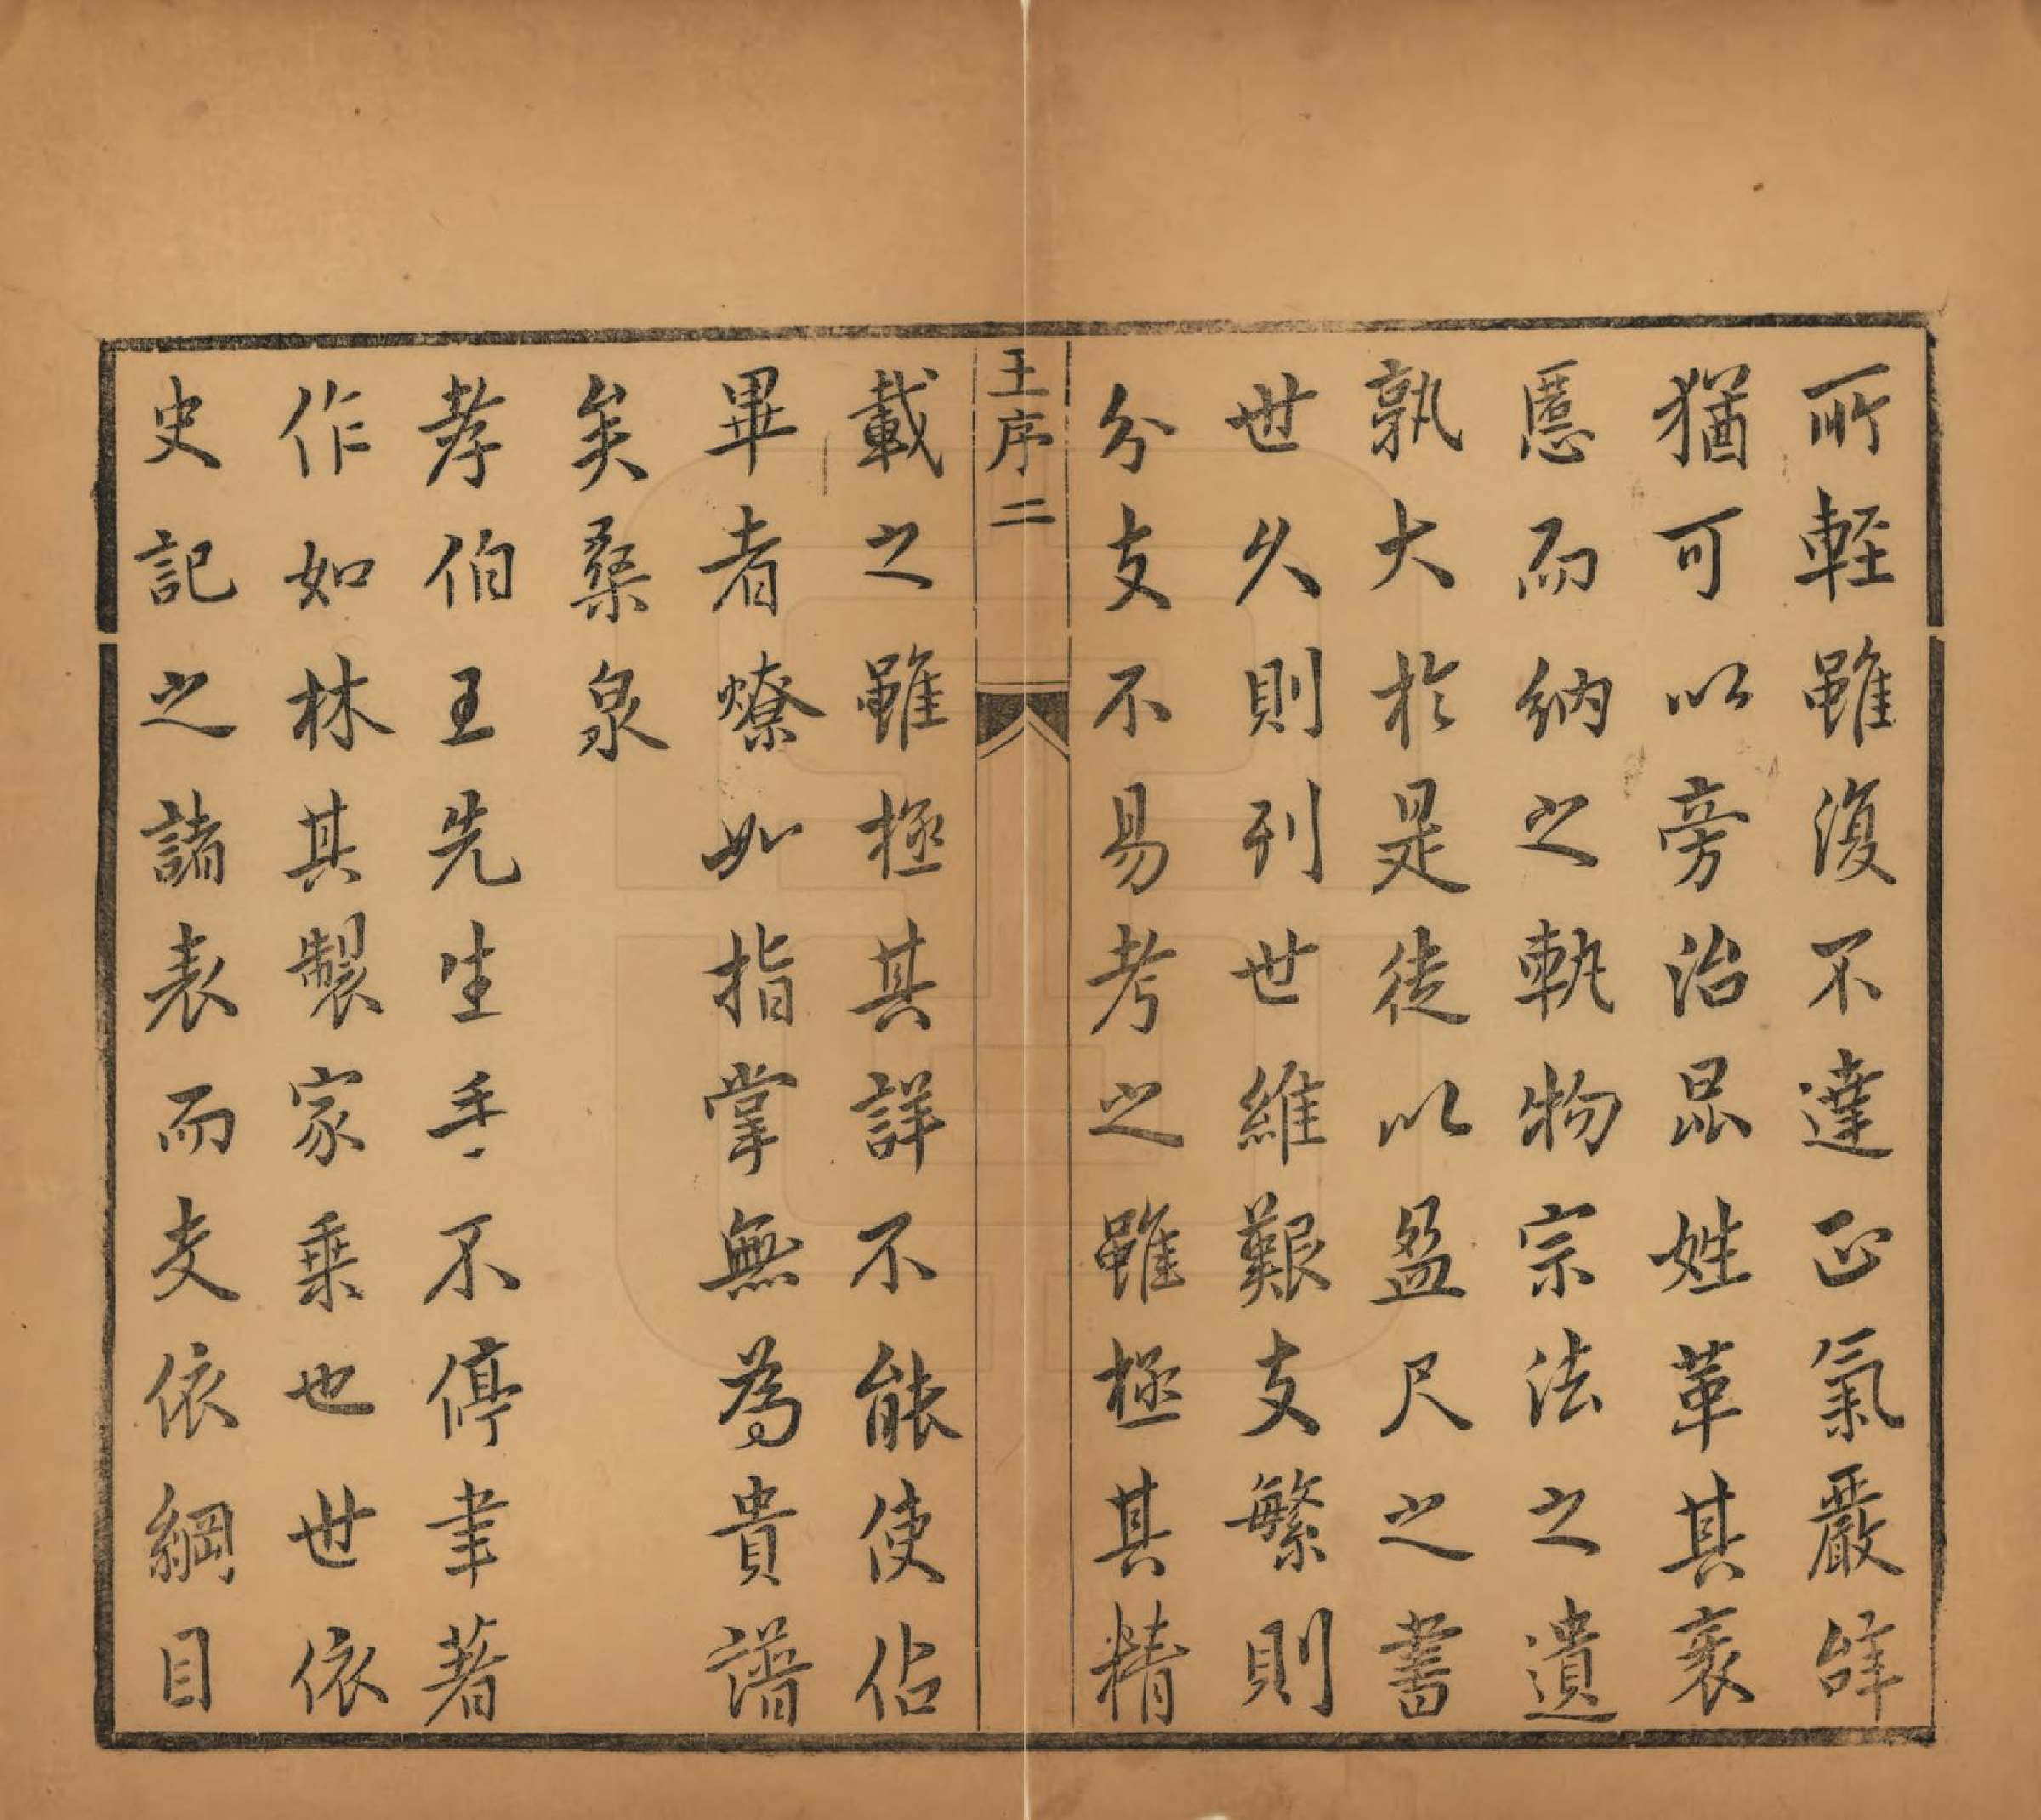 所輕雖復不達正氣嚴辥
猶可以旁治昆姓革其衺
慝而納之軌物宗法之遺
孰大於是徒以盈尺之書
世久則刊世維艱支繁則
分支不易考之雖極其精
王序二
載之雖極其詳不能使佔
畢者憭如指掌無為貴譜
矣桑泉
孝伯王先生手不停聿著
作如林其製家乘也世依
史記之諸表而支依綱目